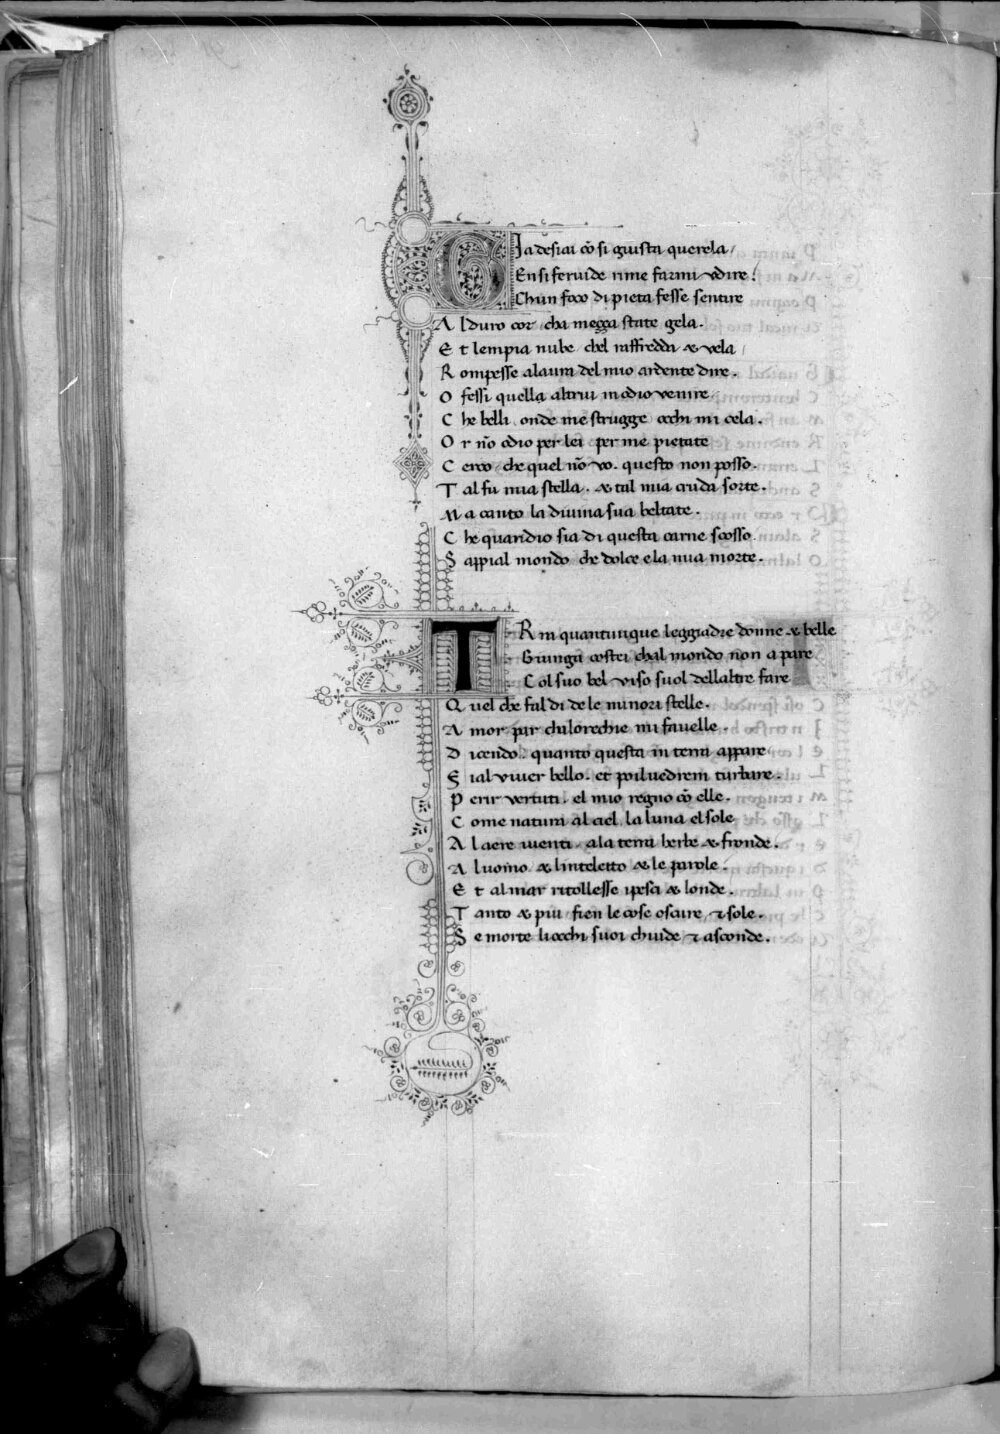 GIa desiai cō si giusta querela
En si feruide rime farmi udire.
Chun foco di pieta fesse sentire
Al duro cor cha mezza state gela.
Et lempia nube chel raffredda & vela
Rompesse alaura del mio ardente dire.
O fessi quella altrui in odio venire
Che belli onde me strugge occhi mi cela.
Or nō odio per lei per me pietate
Cerco che quel nō vo. questo non posso.
Tal fu mia stella. & tal mia cruda sorte.
Ma canto la diuina sua beltate.
Che quandio sia di questa carne scosso
Sappial mondo che dolce e la mia morte.
TRa quantunque leggiadre donne & belle
Giunga costei chal mondo non a pare
Col suo bel viso suol dellaltre fare
Quel che fal di de le minori stelle.
Amor par chalorechie mi fauelle.
Dicendo. quanto questa in terra appare
Sial viuer bello. et poi luedrem turbare.
Perir vertuti. el mio regno cō elle.
Come natura al ciel. la luna el sole
A laere iuenti. ala terra herbe & fronde.
A luomo & lintelletto & le parole.
Et al mar ritollesse ipesci & londe.
Tanto & piu fien le cose oscure & sole.
Se morte liocchi suoi chiude & asconde.